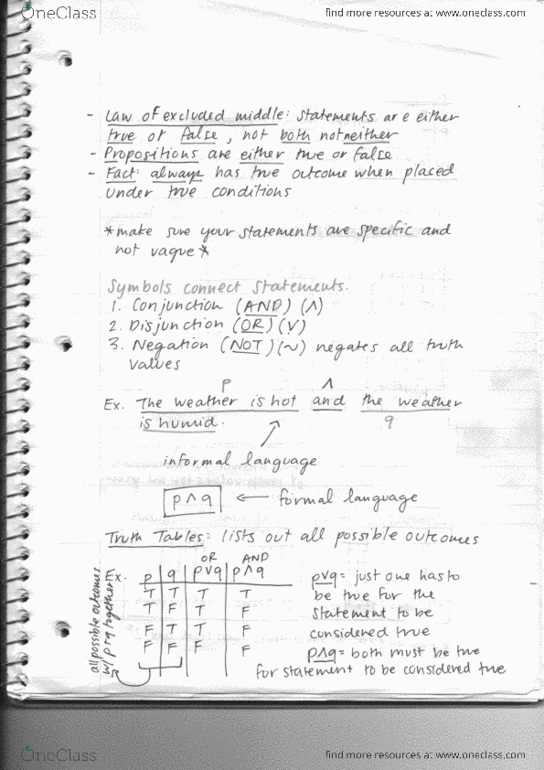 OneClass
find more resources at www.oneclass.com
- Law of excluded middle: statements are either
true or false, not both not neither
- Propositions are either true or false
- Fact: always has true outcome when placed
under true conditions
*make sure your statements are specific and
not vague*
Symbols connect statements.
1. Conjunction (AND) (∧)
2. Disjunction (OR) (∨)
3. Negation (NOT) (~) negates all truth
values
p ∧
Ex. The weather is hot and the weather
is humid. q
informal language
p∧q ← formal language
Truth Tables: lists out all possible outcomes
OR AND
Ex. p q p∨q p∧q
T T T T
T F T F
F T T F
F F F F
all possible outcomes
w/ p & q together
p∨q = just one has to
be true for the
statement to be
considered true
p∧q = both must be true
for statement to be considered true
OneClass
find more resources at www.oneclass.com